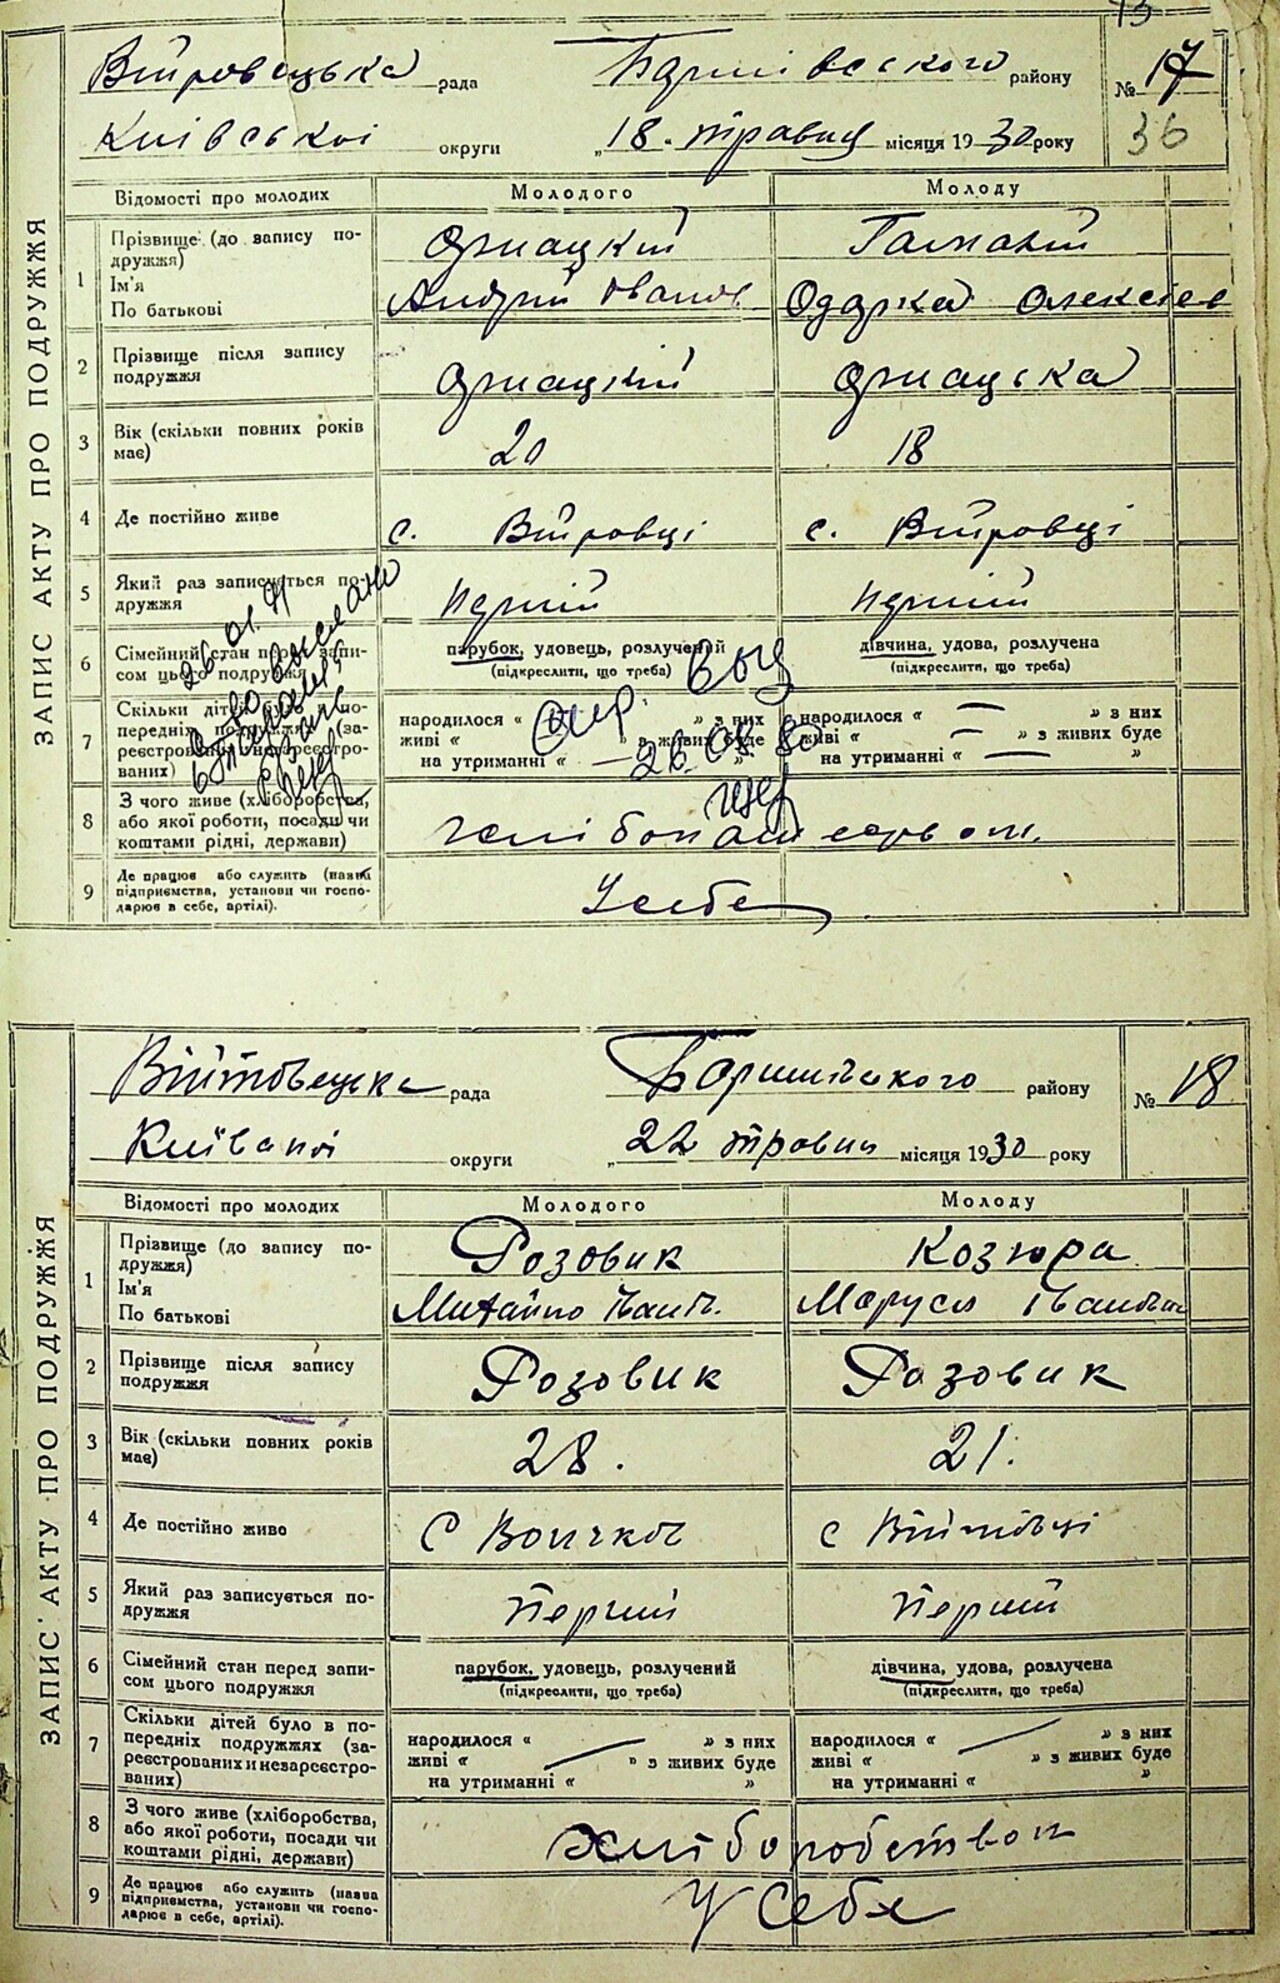 ЗАПИС АКТУ ПРО ПОДРУЖЖЯ
рада району № 17
36
Київської округи „18. травня місяця 1930 року
Відомості про молодих Молодого Молоду
1 Прізвище (до запису по-
дружжя)
Ім'я Андрій Іванов Одарка Олексіев
По батькові
2 Прізвище після запису
подружжя
3 Вік (скільки повних років
має) 20 18
4 Де постійно живе с. Війровці с. Війровці
5 Який раз записується по-
дружжя перший перший
6 Сімейний стан перед запи-
сом цього подружжя
парубок, удовець, розлучений дівчина, удова, розлучена
(підкреслити, що треба) (підкреслити, що треба)
7 Скільки дітей було в по-
передніх подружжях (за-
реєстрованих і незареєстро-
ваних)
народилося « » з них народилося « — » з них
живі « » з живих буде живі « — » з живих буде
на утриманні « — » на утриманні « — »
26.01.71
26 08 80
8 З чого живе (хліборобства,
або якої роботи, посади чи
коштами рідні, держави)
9 Де працює або служить (назва
підприємства, установи чи госпо-
дарює в себе, артілі). У себе
ЗАПИС АКТУ ПРО ПОДРУЖЖЯ
Війтовецька рада Баришівського району № 18
Київської округи „22 травня місяця 1930 року
Відомості про молодих Молодого Молоду
1 Прізвище (до запису по-
дружжя) Розовик Козюра
Ім'я Михайло Іван. Маруся Івановн
По батькові
2 Прізвище після запису
подружжя Розовик Розовик
3 Вік (скільки повних років
має) 28. 21.
4 Де постійно живе С Волчков с Війтовці
5 Який раз записується по-
дружжя Перший Перший
6 Сімейний стан перед запи-
сом цього подружжя
парубок, удовець, розлучений дівчина, удова, розлучена
(підкреслити, що треба) (підкреслити, що треба)
7 Скільки дітей було в по-
передніх подружжях (за-
реєстрованих и незареєстро-
ваних)
народилося « » з них народилося « » з них
живі « » з живих буде живі « » з живих буде
на утриманні « » на утриманні « »
8 З чого живе (хліборобства,
або якої роботи, посади чи
коштами рідні, держави) хліборобством
9 Де працює або служить (назва
підприємства, установи чи госпо-
дарює в себе, артілі). У Себе